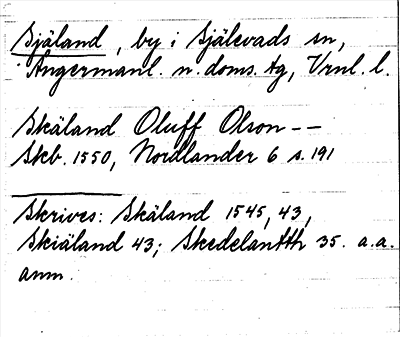 Själand, by i Själevads sn,
Ångermanl. n. doms. tg, Vrnl. l.
Skäland Oluff Olson - -
Skb. 1550, Nordlander 6 s. 191
Skrives: Skäland 1545, 43,
Skiäland 43; Skedelantth 35. a.a.
anm.